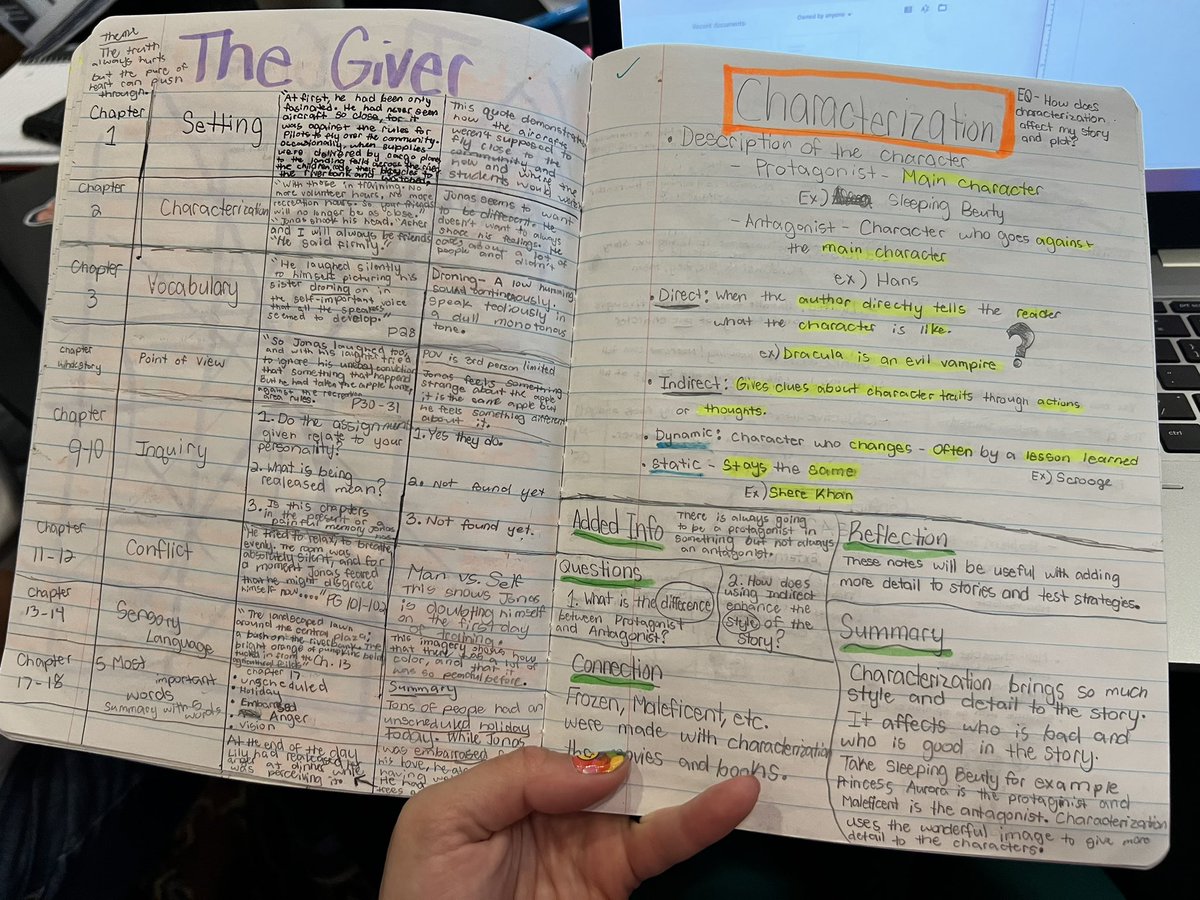 Theme
The truth
always hurts
but the pure of
heart can push
through.
The Giver
Chapter
1
Setting
"At first, he had been only
fasinated. He had never seen
aircraft so close, for it
was against the rules for
Pilots to fly over the community.
Occasionally, when supplies
were delivered by cargo planes
to the landing field across the river
the children rode their bicycles to
the riverbank and watched
This quote demonstrates
how the aircrafts
weren't supposed to
fly close to the
community and
how and where the
students would
Chapter
2
Characterization
"With those in training. No
more volunteer hours, No more
recreation hours. So your friends
will no longer be as close."
"Jonas shook his head. "Asher
and I will always be friends"
"He said firmly."
Jonas seems to want
to be different. He
doesn't want to always
share his feelings. He
cares about a lot of
people and didn't
Chapter
3
Vocabulary
"He laughed silently
to himself picturing his
sister droning on in
the self-important voice
that all the speakers
seemed to develop."
P28
Droning- A low humming
sound continuously.
Speak tediously in
a dull monotonous
tone.
chapter
whole story
Point of View
"So Jonas laughed too,
and with his laughter tried
to ignore his uneasy conviction
that something that happened
But he had taken the apple home,
against the recreation
area rules.
P30-31
POV is 3rd person limited
Jonas feels something
strange about the apple
it is the same apple but
he feels something different
about it.
Chapter
9-10
Inquiry
1. Do the assignments
given relate to your
personality?
2. What is being
realeased mean?
3. Is this chapters
in the present or a
painful memory Jonas
1. Yes they do.
2. Not found yet
3. Not found yet.
Chapter
11-12
Conflict
"He tried to relax, to breathe
evenly. The room was
absolutely silent, and for
a moment Jonas feared
that he might disgrace
himself now....." PG 101-102
Man vs. Self
This shows Jonas
is doubting himself
on the first day
of training.
Chapter
13-14
Sensory
Language
"The landscaped lawn
around the central plaza;
a bush on the riverbank. The
bright orange of pumpkins being
Ch. 13
This imagery shows how
that there is a lot of
color, and that it
was so peaceful before.
Chapter
17-18
5 Most
important
words
summary with 5
words.
• Chapter 17
• unscheduled
• Holiday
• Embarrased
• Anger
• Vision
At the end of the day
Lily had
at dinner while
perceiving
Summary
Tons of people had an
unscheduled holiday
today. While Jonas
was embarrased
his love, he
having
He had
trees
✓
Characterization
EQ- How does
characterization
affect my story
and plot?
• Description of the character
Protagonist- Main character
Ex) Sleeping Beuty
- Antagonist- Character who goes against
the main character
ex) Hans
• Direct: When the author directly tells the reader
what the character is like.
ex) Dracula is an evil vampire
?
• Indirect: Gives clues about character traits through actions
or thoughts.
• Dynamic: Character who changes - Often by a lesson learned
Ex) Scrooge
• Static - Stays the same
Ex) Shere Khan
Added Info
There is always going
to be a protagonist in
something but not always
an antagonist.
Questions
1. What is the difference
between Protagonist
and Antagonist?
2. How does
using Indirect
enhance the
style of the
story?
Connection
Frozen, Maleficent, etc.
were made with characterization
the movies and books.
Reflection
These notes will be useful with adding
more detail to stories and test strategies.
Summary
Characterization brings so much
style and detail to the story.
It affects who is bad and
who is good in the story.
Take Sleeping Beuty for example
Princess Aurora is the protaginist and
Maleficent is the antagonist. Characterization
uses the wonderful image to give more
detail to the characters.
Recent documents
Owned by anyone
ctrl